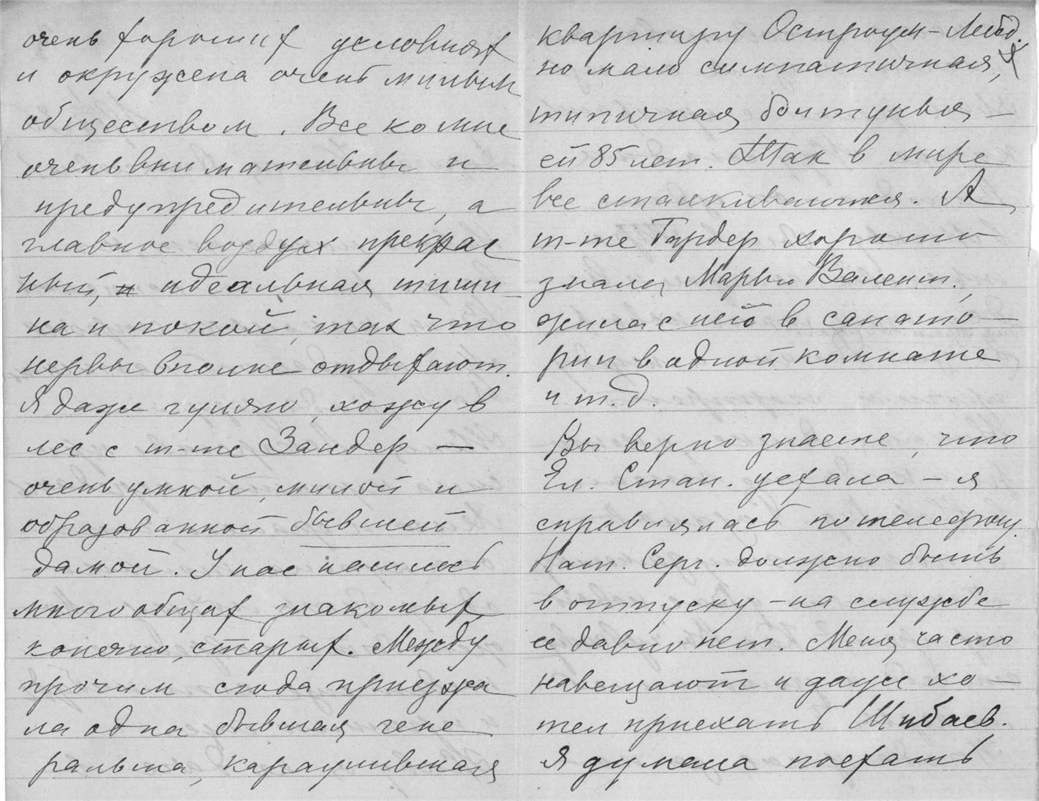 очень хороших условиях
и окружена очень милым
обществом. Все ко мне
очень внимательны и
предупредительны, а
главное воздух прекрас
ный, идеальная тиши-
на и покой, так что
нервы вполне отдыхают.
Я даже гуляю, хожу в
лес с m-me Зандер —
очень умной, милой и
образованной бывшей
дамой. У нас нашлось
много общих знакомых,
конечно, старых. Между
прочим сюда приезжа
ла одна бывшая гене
ральша, караулившая
квартиру Остроум-Лебед.
но мало симпатичная,
типичная болтунья —
ей 85 лет. Так в мире
все сталкиваются. А
m-me Гардер хорошо
знала Марью Валент.,
жила с ней в санато-
рии в одной комнате
и т.д.
Вы верно знаете, что
Ел. Стан. уехала — я
справлялась по телефону.
Нат. Серг. должно быть
в отпуску — на службе
ее давно нет. Меня часто
навещают и даже хо-
тел приехать Шибаев.
Я думала поехать